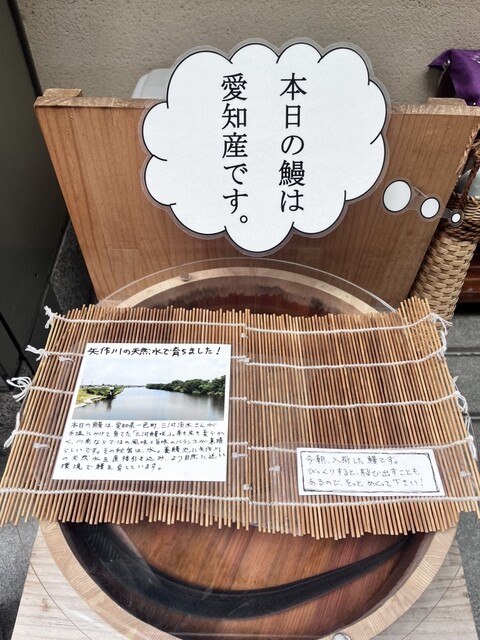 本日の鰻は
愛知産です。
矢作川の天然水で育ちました！
本日の鰻は、愛知県一色町 三河淡水さんが
手塩にかけて育てた「三河鰻咲」。身も皮も柔らか
く、川魚ならではの風味と旨味のバランスが素晴
らしいです。その秘密は、水。養鰻池に矢作川
の天然水を直接引き込み、より自然に近い
環境で鰻を育てています。
今朝、入荷した鰻です。
びっくりすると、飛び出すことも
あるので、そっと めくって下さい！